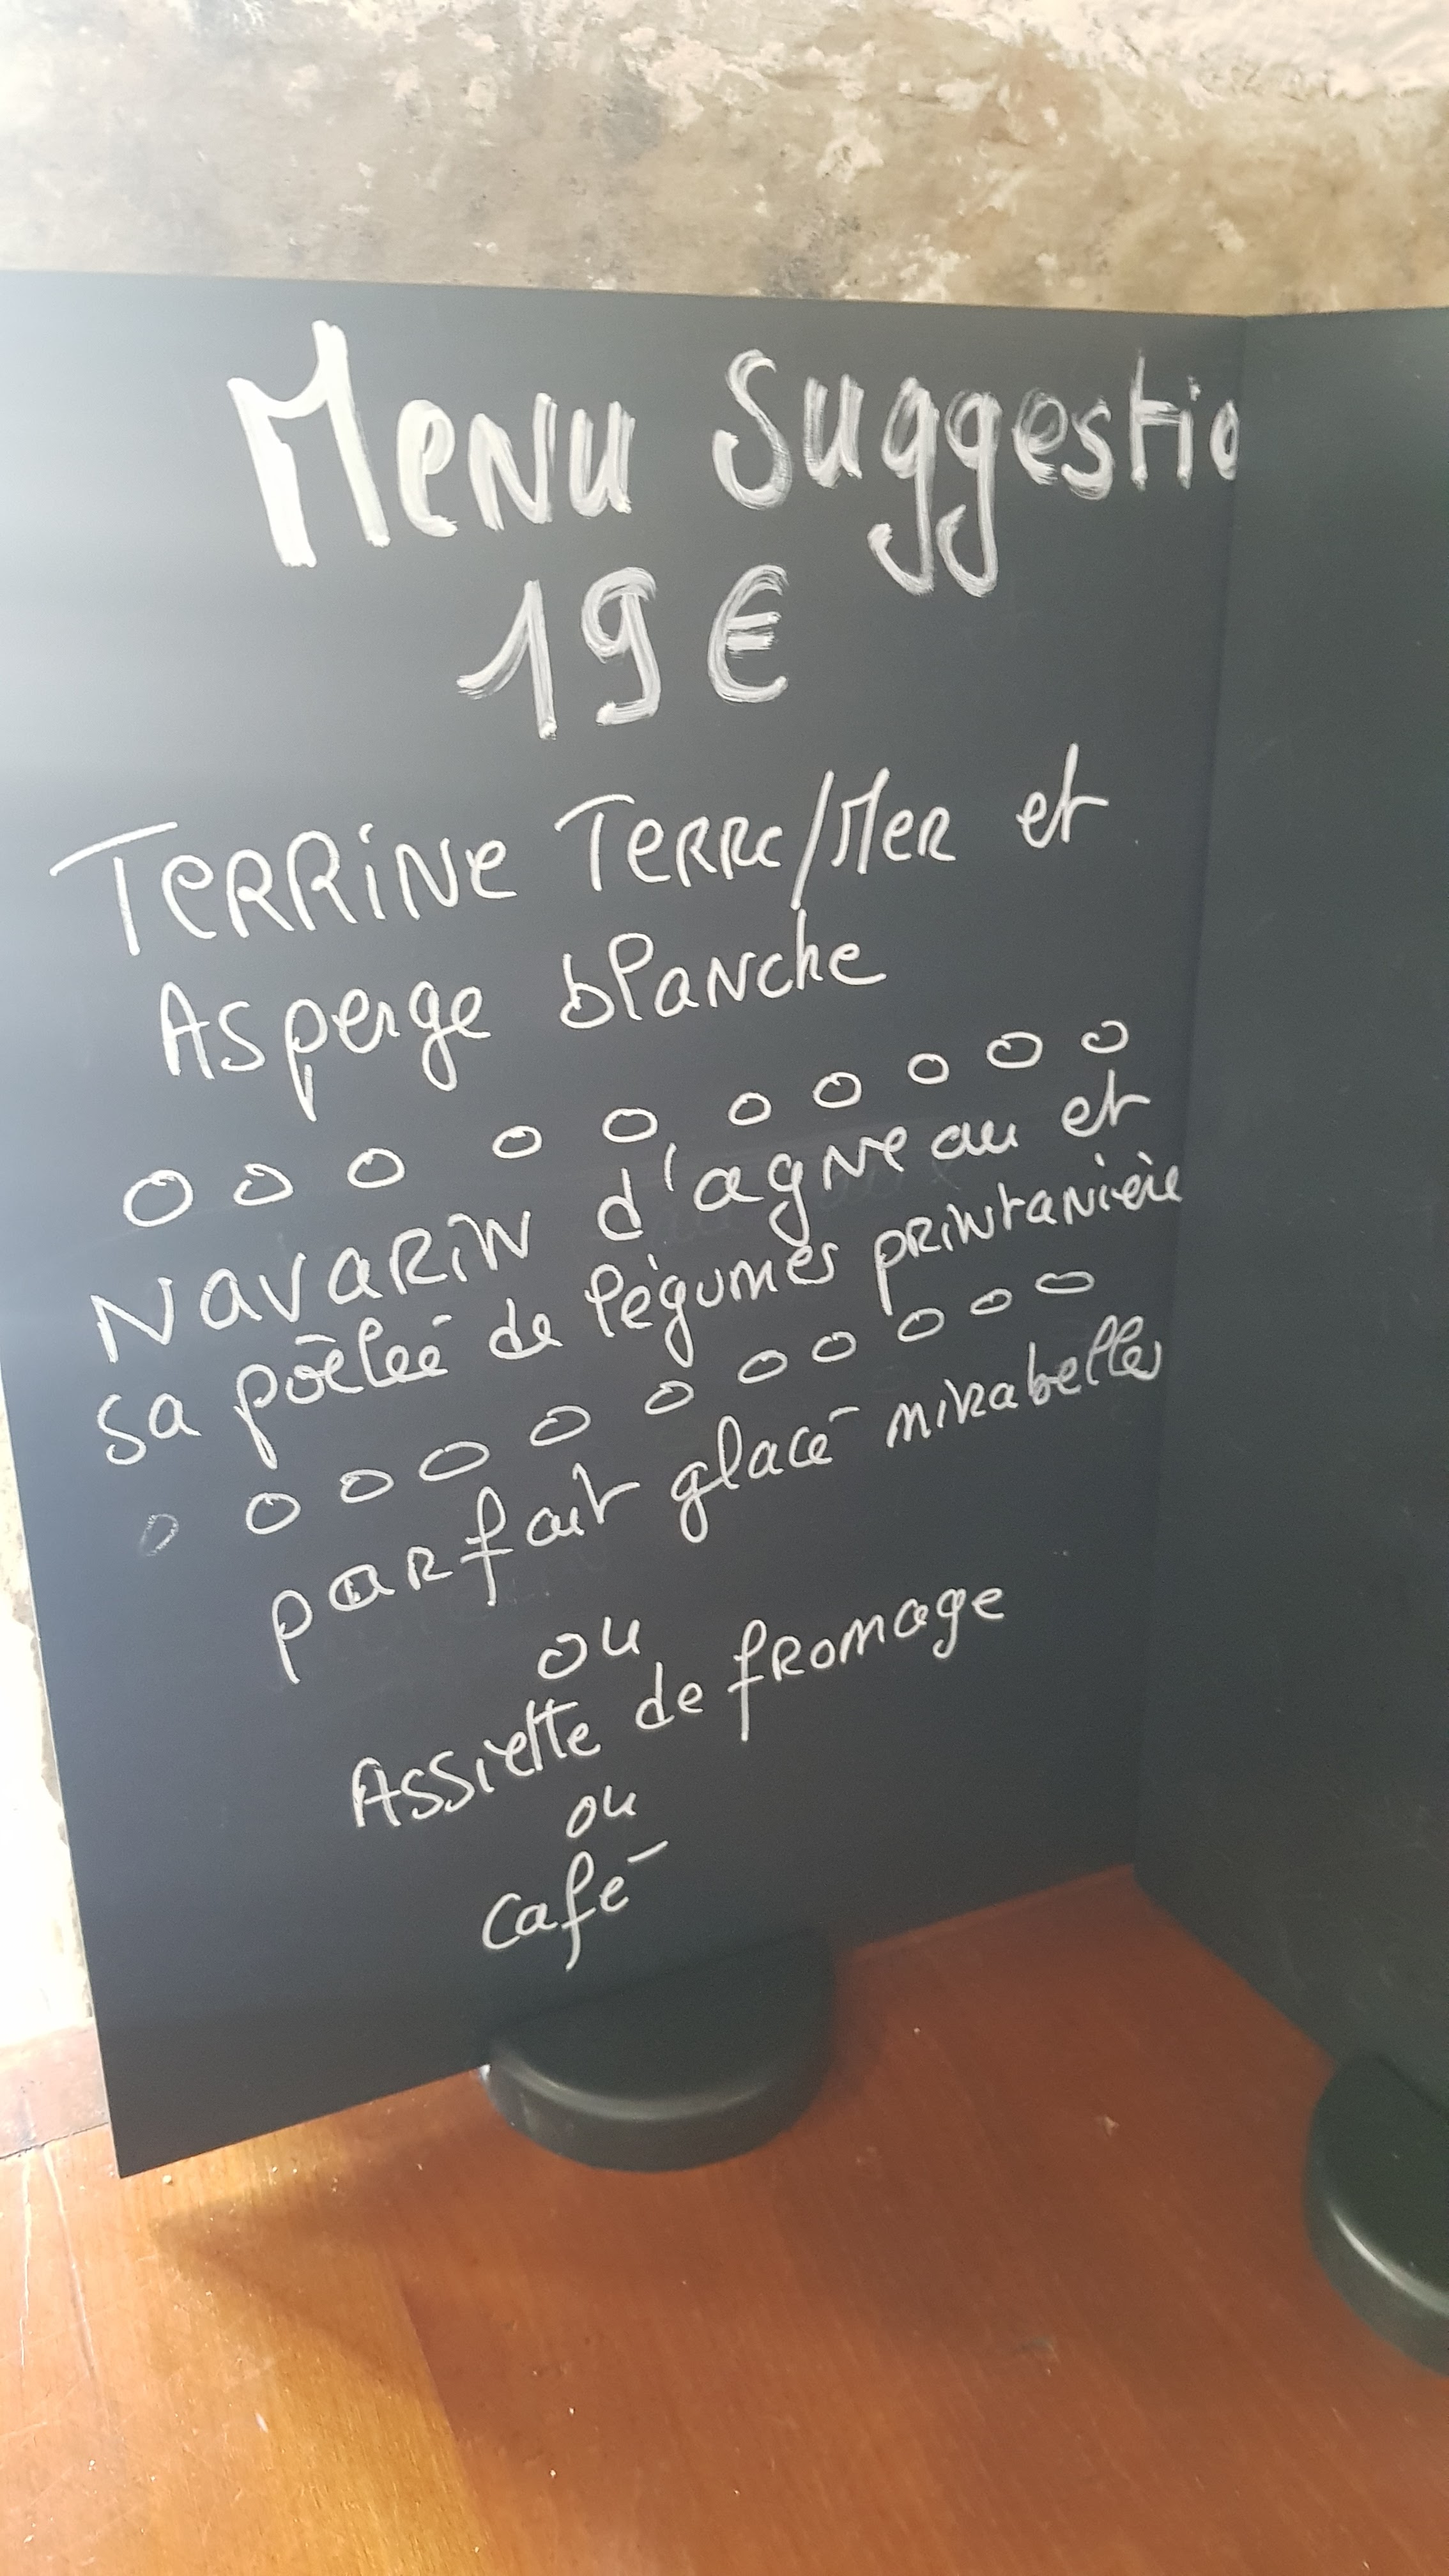 Menu Suggestio
19€
Terrine Terre/Mer et
Asperge blanche
Navarin d'agneau et
sa poêlée de légumes printanière
parfait glacé mirabelles
ou
Assiette de fromage
ou
Café